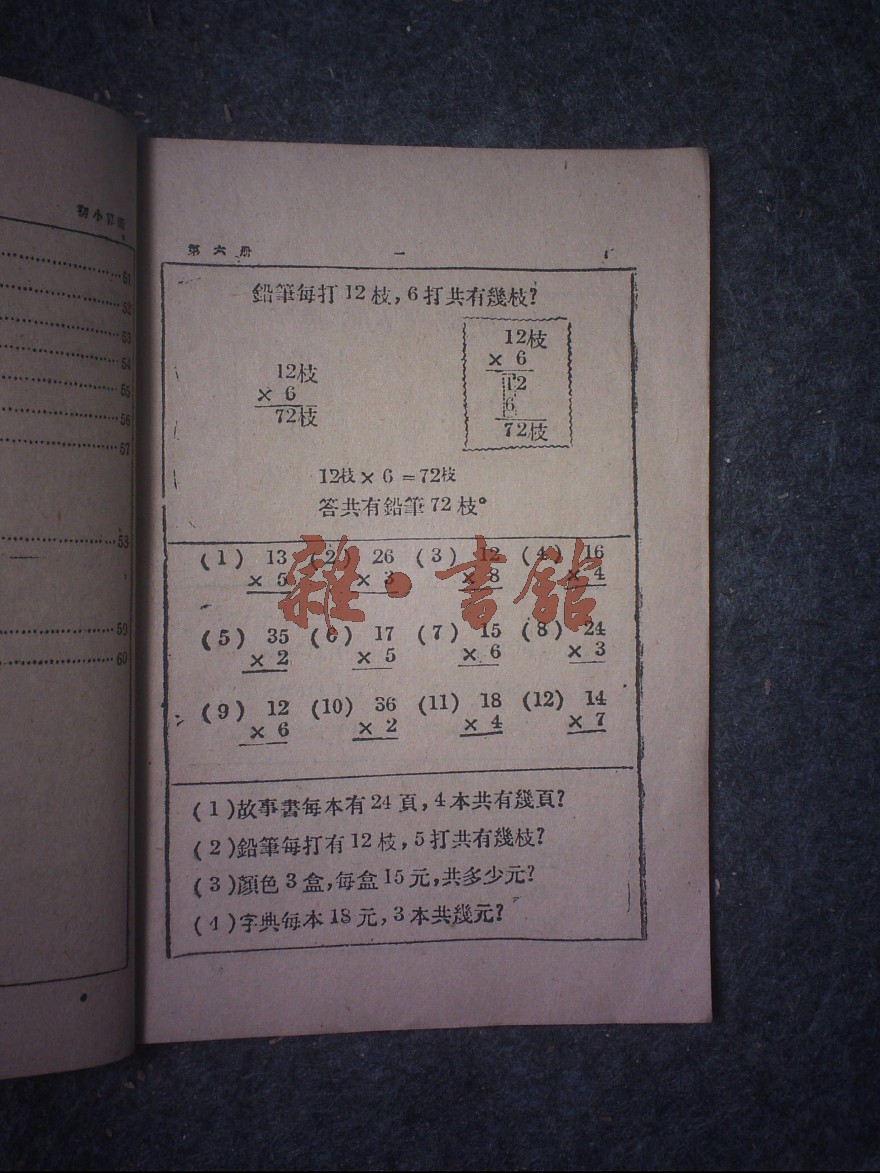 初小算術
51
52
53
54
55
56
57
58
59
60
第六册 一 1
鉛筆每打12枝，6打共有幾枝？
12枝
× 6
72枝
12枝
× 6
12
6
72枝
12枝×6=72枝
答共有鉛筆72枝。
(1) 13 (2) 26 (3) 12 (4) 16
× 5 × 3 × 8 × 4
(5) 35 (6) 17 (7) 15 (8) 24
× 2 × 5 × 6 × 3
(9) 12 (10) 36 (11) 18 (12) 14
× 6 × 2 × 4 × 7
(1)故事書每本有24頁，4本共有幾頁？
(2)鉛筆每打有12枝，5打共有幾枝？
(3)顏色3盒，每盒15元，共多少元？
(4)字典每本18元，3本共幾元？
雜·書館